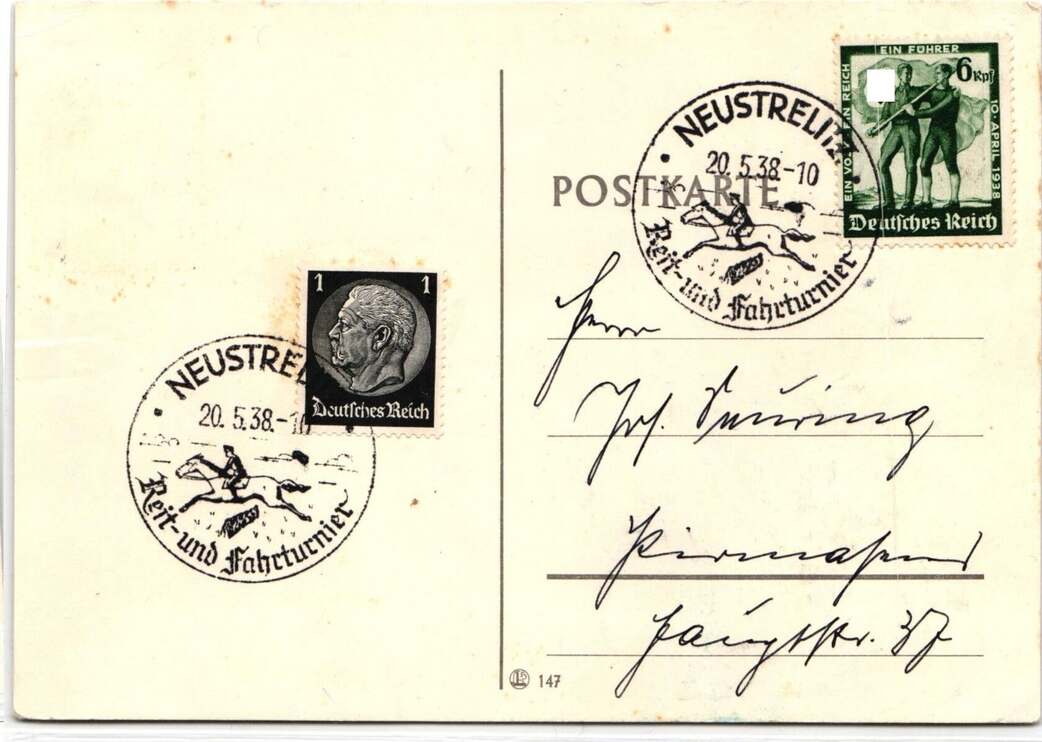 POSTKARTE
NEUSTRELITZ
20.5.38.-10
Reit- und Fahrturnier
EIN VOLK EIN REICH
EIN FÜHRER
10. APRIL 1938
6 Rpf
Deutsches Reich
1 1
Deutsches Reich
NEUSTREL
20.5.38.-10
Reit- und Fahrturnier
Herrn
Pirmasens
Hauptstr. 37
147